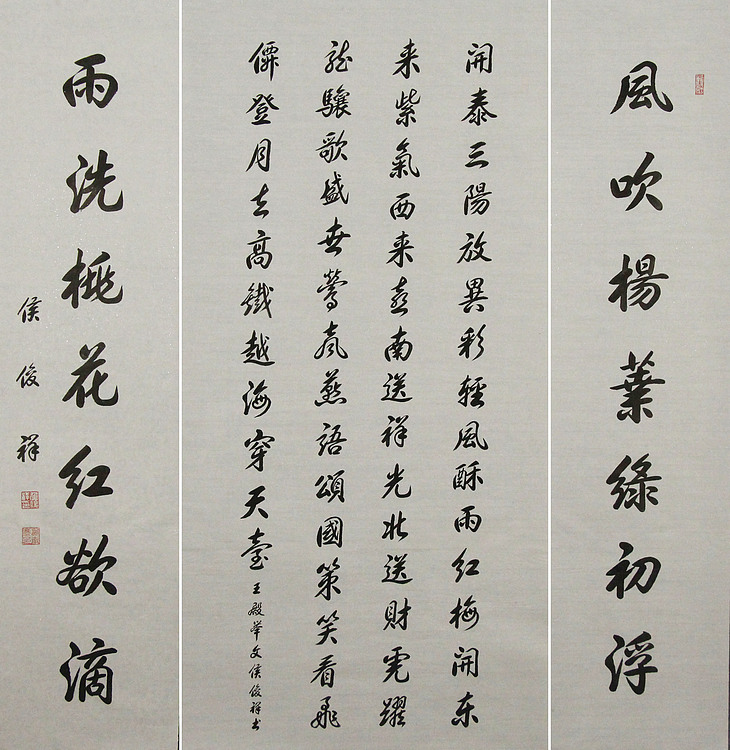 風吹楊葉綠初浮
開泰三陽放異彩輕風酥雨紅梅開东
来紫氣西来喜南送祥光北送財虎躍
龍驤歌盛世鶯声燕語頌國策笑看飛
僊登月去高鐵越海穿天臺
王殿華文侯俊祥书
雨洗桃花红欲滴
侯俊祥